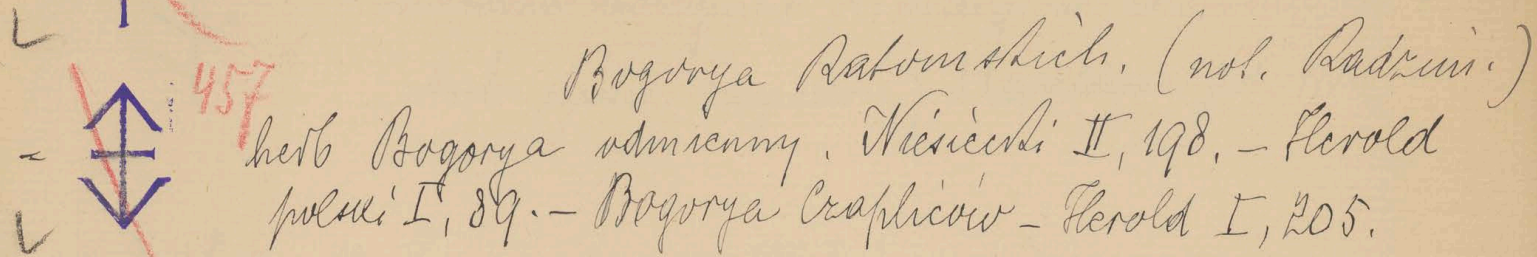 Bogorya Ratomskich. (not. Radzim.)
457
herb Bogorya odmienny. Niesiecki II, 198. – Herold
polski I, 89. – Bogorya Czapliców – Herold I, 205.